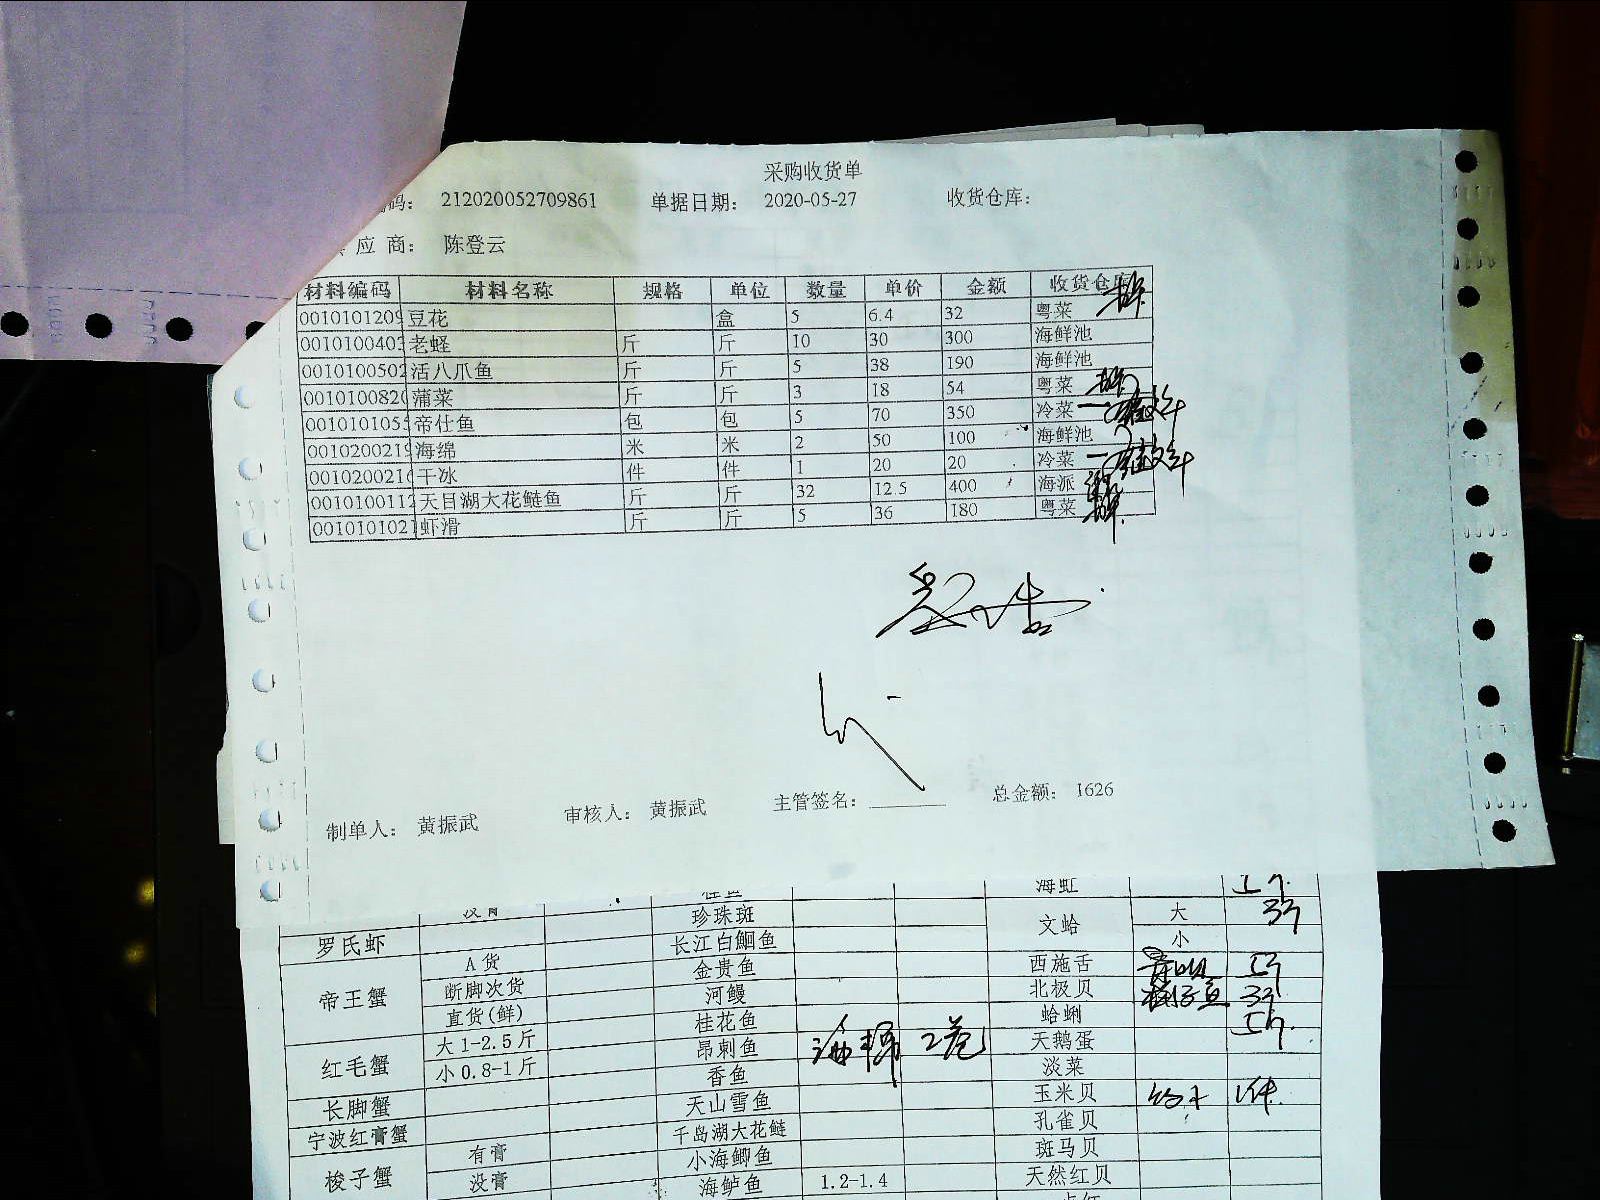 采购收货单
码： 212020052709861 单据日期： 2020-05-27 收货仓库：
应 商： 陈登云
材料编码 材料名称 规格 单位 数量 单价 金额 收货仓库
0010101209 豆花 盒 5 6.4 32 粤菜
0010100403 老蛏 斤 斤 10 30 300 海鲜池
0010100502 活八爪鱼 斤 斤 5 38 190 海鲜池
0010100820 蒲菜 斤 斤 3 18 54 粤菜
0010101055 帝仕鱼 包 包 5 70 350 冷菜
0010200219 海绵 米 米 2 50 100 海鲜池
0010200216 干冰 件 件 1 20 20 冷菜
0010100112 天目湖大花鲢鱼 斤 斤 32 12.5 400 海派
0010101021 虾滑 斤 斤 5 36 180 粤菜
制单人： 黄振武 审核人： 黄振武 主管签名： 总金额： 1626
没膏 海虹
珍珠斑 文蛤 大
罗氏虾 长江白鮰鱼 小
帝王蟹 A货 金贵鱼 西施舌
断脚次货 河鳗 北极贝
直货(鲜) 桂花鱼 蛤蜊
红毛蟹 大1-2.5斤 昂刺鱼 海绵 2卷 天鹅蛋
小0.8-1斤 香鱼 淡菜
长脚蟹 天山雪鱼 玉米贝 1件
宁波红膏蟹 千岛湖大花鲢 孔雀贝
梭子蟹 有膏 小海鲫鱼 斑马贝
没膏 海鲈鱼 1.2-1.4 天然红贝